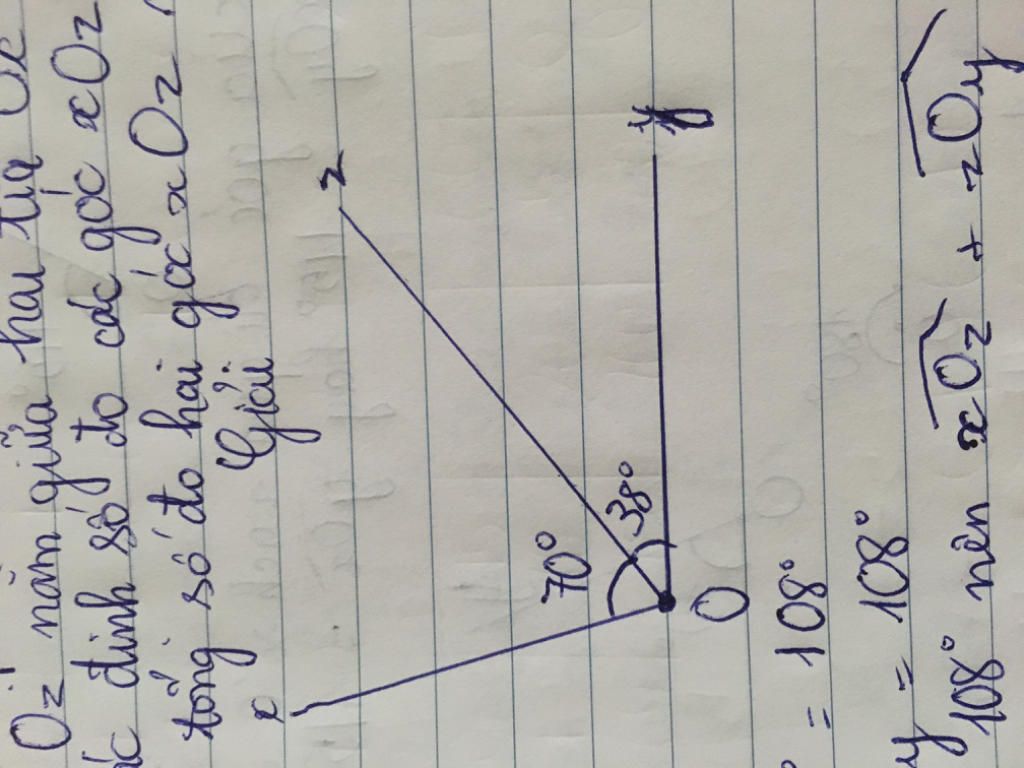 Oz nằm giữa hai tia Ox
ác định số đo các góc xOz
tổng số đo hai góc xOz
Giải
z
y
70°
38°
O
= 108°
y = 108°
108° nên xOz + zOy